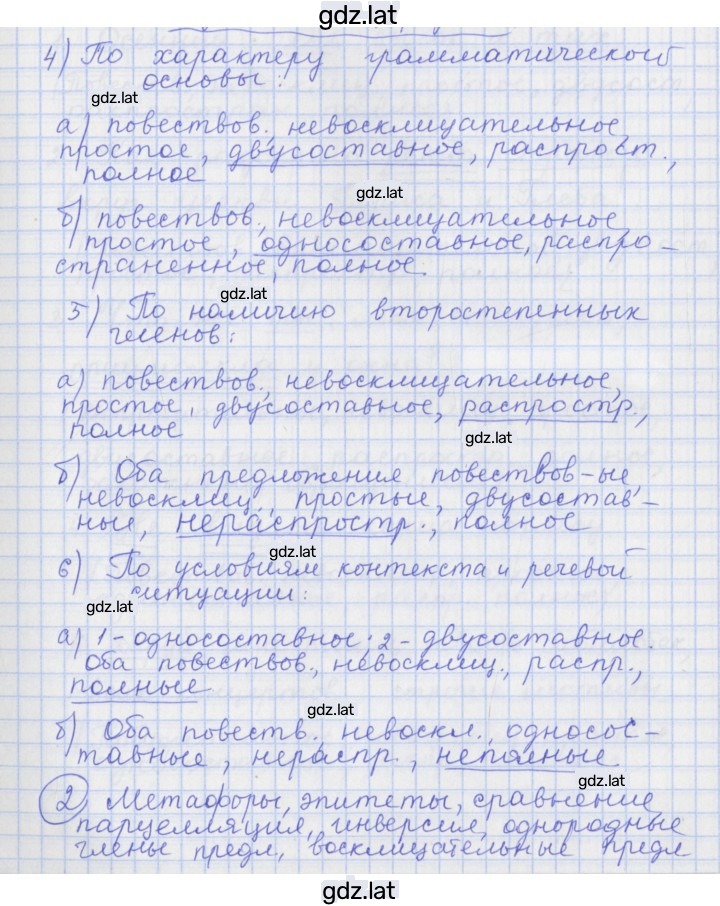 gdz.lat
4) По характеру грамматической
основы:
gdz.lat
а) повествов. невосклицательное,
простое, двусоставное, распрост.,
полное
gdz.lat
б) повествов., невосклицательное,
простое, односоставное, распро-
страненное, полное.
gdz.lat
5) По наличию второстепенных
членов:
а) повествов., невосклицательное,
простое, двусоставное, распростр.,
полное
gdz.lat
б) Оба предложения повествов-ые,
невосклиц., простые, двусостав-
ные, нераспростр., полное
gdz.lat
6) По условиям контекста и речевой
ситуации:
gdz.lat
а) 1-односоставное; 2-двусоставное.
Оба повествов., невосклиц., распр.,
полные
gdz.lat
б) Оба повеств. невоскл., односос-
тавные, нераспр., неполные.
gdz.lat
2 Метафоры, эпитеты, сравнение
парцелляция, инверсия, однородные
члены предл, восклицательные предл
gdz.lat